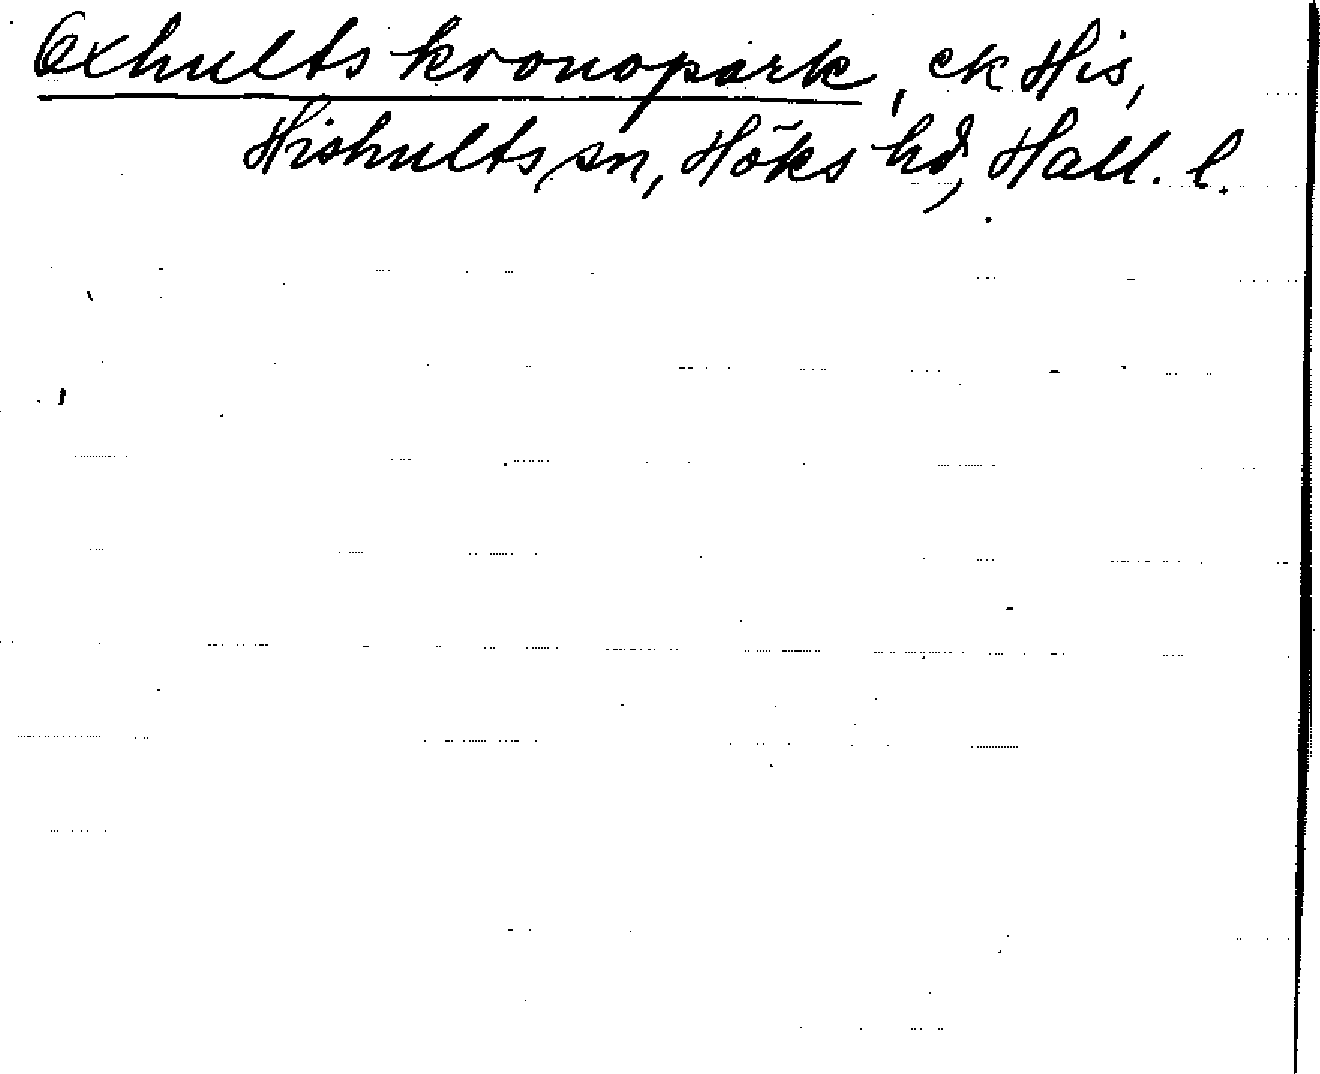 Oxhults kronopark, ek His,
Hishults sn, Höks hd, Hall. l.